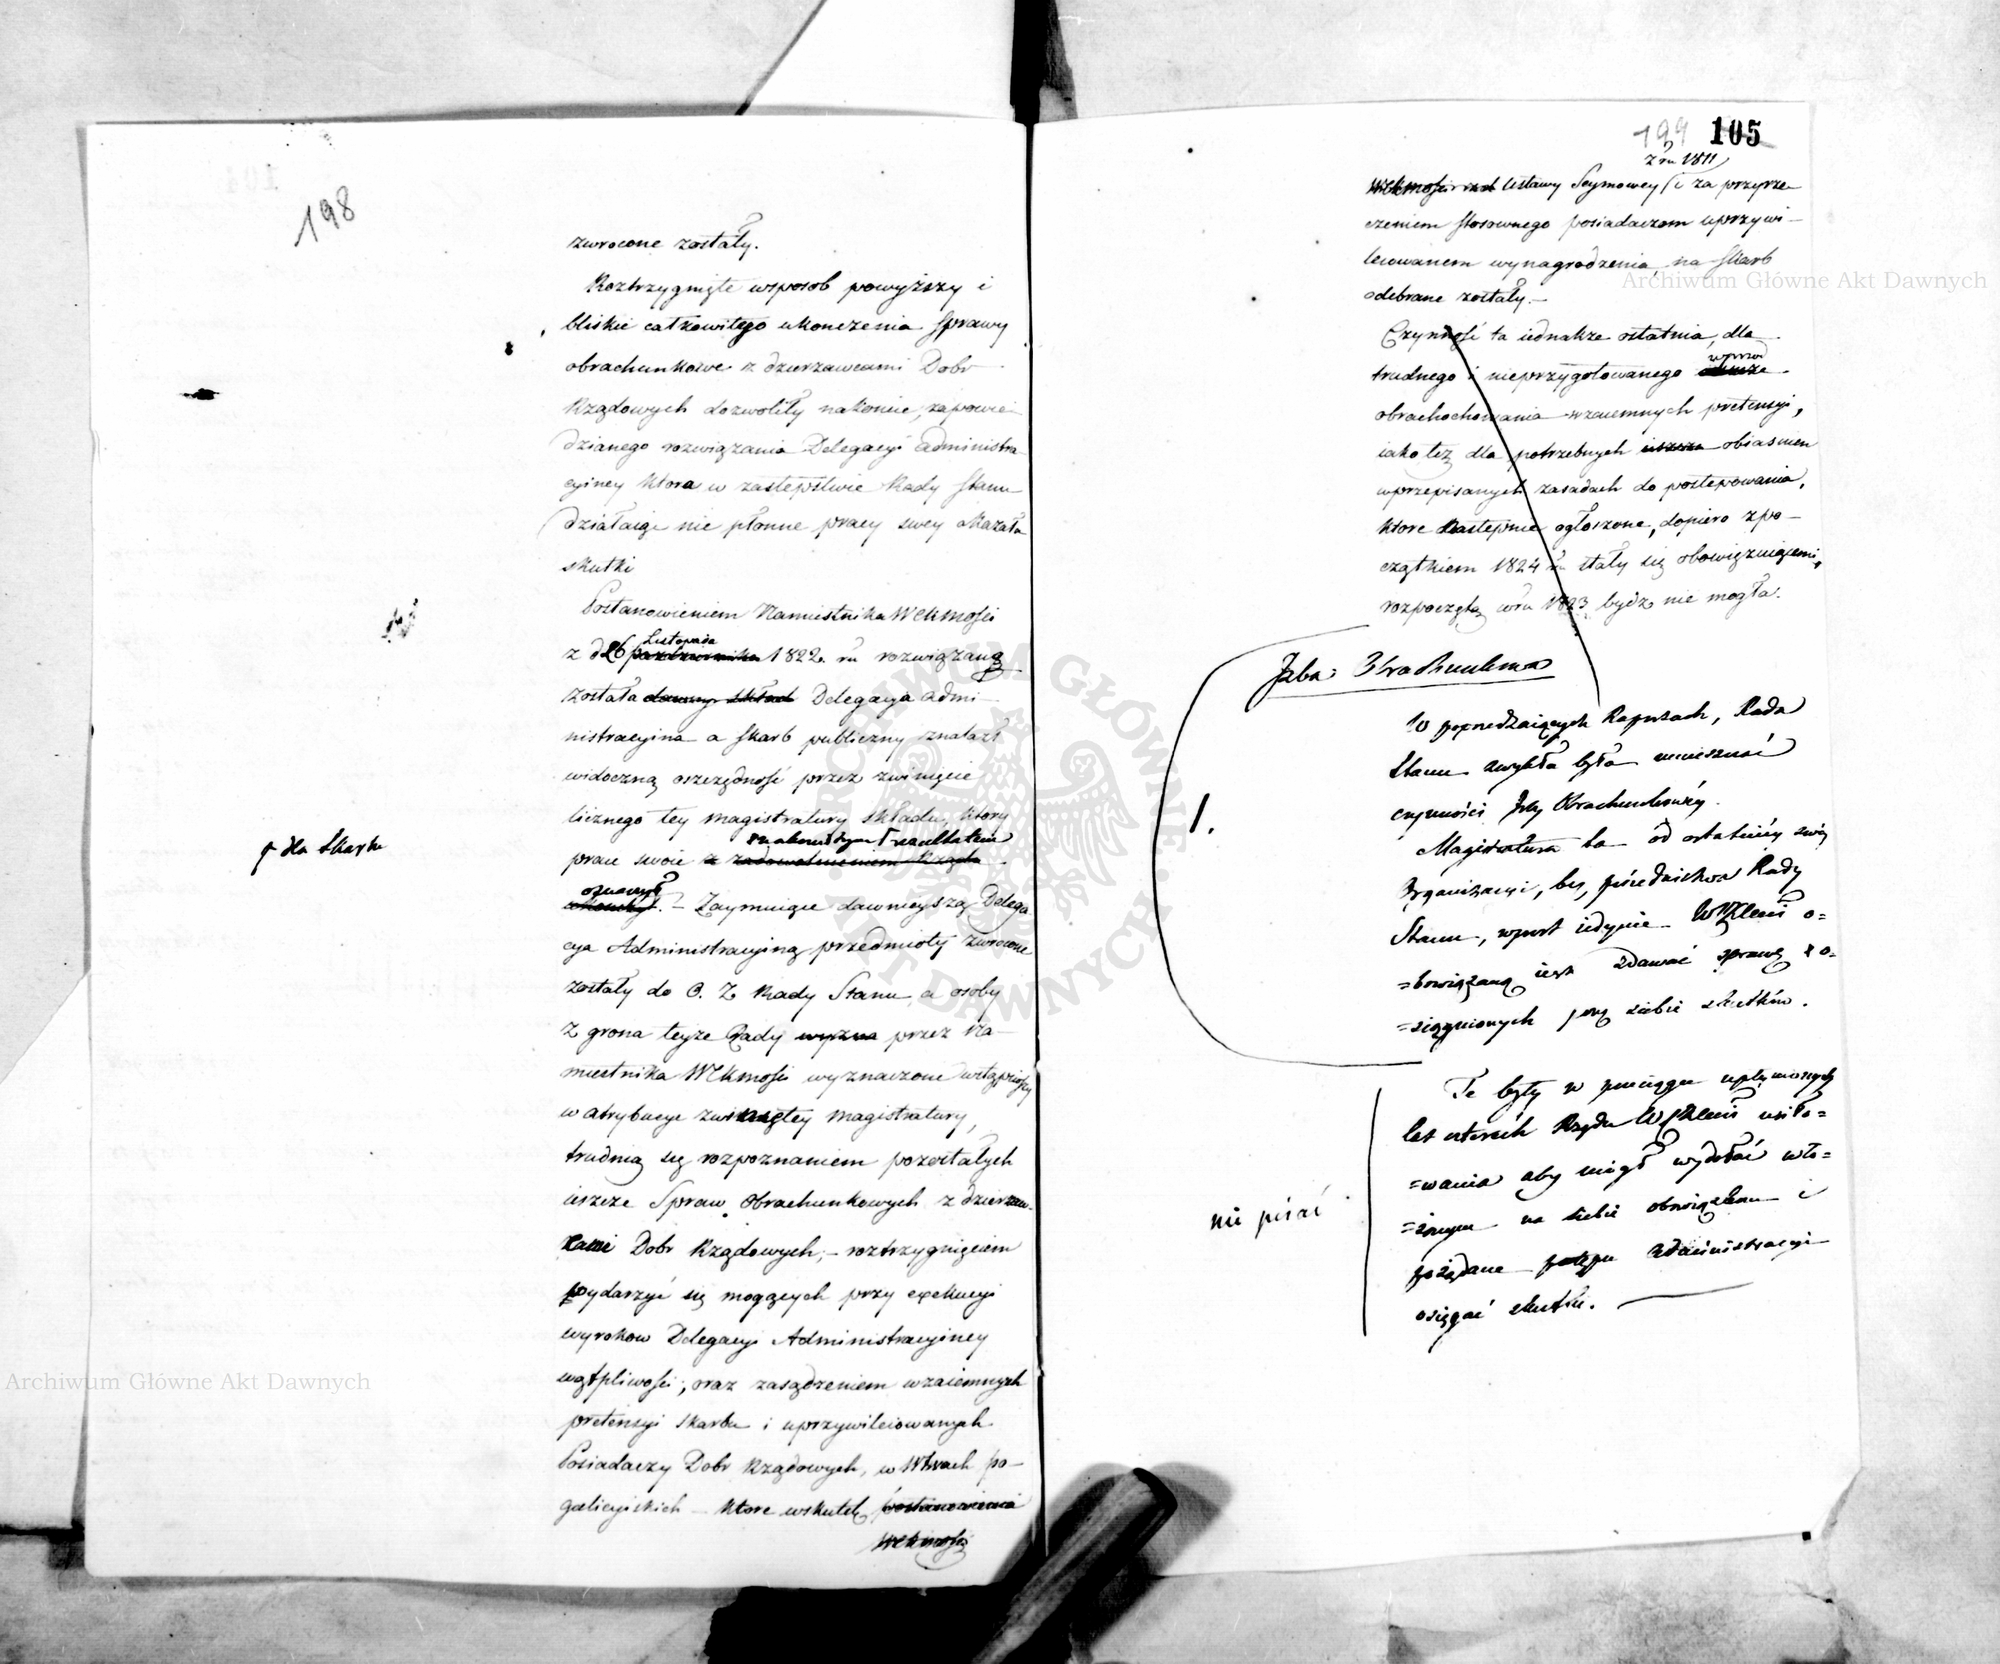 198
zwrocone zostały.
Roztrzygnięte wsposob powyższy i
bliskie całkowitego ukończenia sprawy
obrachunkowe z dzierzawcami Dobr
Rządowych dozwoliły nakoniec, zapowie-
dzianego rozwiązania Delegacyi administra
cyiney ktora w zastępstwie Rady Stanu
działaiąc nie płonne pracy swey okazała
skutki
Postanowieniem Namiestnika WCKmości
Listopada
z d 26 pazdziernika 1822. ru rozwiązaną
została dawny skład Delegacya admi-
nistracyina a skarb publiczny znalazł
widoczną oszczędność przez zwinięcie
licznego tey magistratury składu, ktory
rezultatem
prace swoie z zadowolnieniem Rządu
ꝗ dla skarbu
oznaczył
. – Zaymuiące dawnieyszą Delega
cya Administracyiną przedmioty zwrocone
zostały do O. Z Rady Stanu, a osoby
z grona teyże Rady przez Na-
miestnika WCKmości wyznaczone wstąpiwszy
w atrybucye zwiniętey magistratury,
trudnią się rozpoznaniem pozostałych
ieszcze Spraw Obrachunkowych z dzierzaw-
cami Dobr Rządowych, – roztrzygnięciem
wydarzyć się mogących przy exekucyi
wyrokow Delegacyi Administracyiney
wątpliwości, oraz zasądzeniem wzaiemnych
pretensyi skarbu i uprzywileiowanych
Posiadaczy Dobr Rządowych, w Wtwach po-
galicyiskich – ktore wskutek postanowienia
WCKmości
199 105
z ru 1811
WCKmości Ustawy Seymowey i za przyrze
czeniem stosownego posiadaczom uprzywi-
leiowanem wynagrodzenia, na skarb
odebrane zostały. –
Czynność ta iednakze ostatnia, dla
trudnego i nieprzygotowanego
obrachochowania wzaiemnych pretensyi,
iako też dla potrzebnych ieszcze obiasnien
wprzepisanych zasadach do postepowania,
ktore nastepnie ogłoszone, dopiero z po-
czątkiem 1824 ru stały się obowięzuiącemi,
rozpoczętą wru 1823 bydź nie mogła.
Izba Obrachunkowa
1.
W poprzedzaiących Raportach, Rada
Stanu zwykła była umieszczać
czynności Izby Obrachunkowéy.
Magistratura ta od ostatniéy swéy
Organizacyi, bez pośrednictwa Rady
Stanu, wprost iedynie WCKMci o=
=bowiązaną iest zdawać sprawę z o-
=siągnionych przez siebie skutków.
Te były w przeciągu upłynionych
lat czterech Rządu WCKMci usiło=
=wania aby mógł wydołać wło=
=żonym na siebie obowiązkom i
pożądane postępu Administracyi
osięgać skutki.
nie pisać
Archiwum Główne Akt Dawnych
Archiwum Główne Akt Dawnych
ARCHIWUM GŁÓWNE AKT DAWNYCH